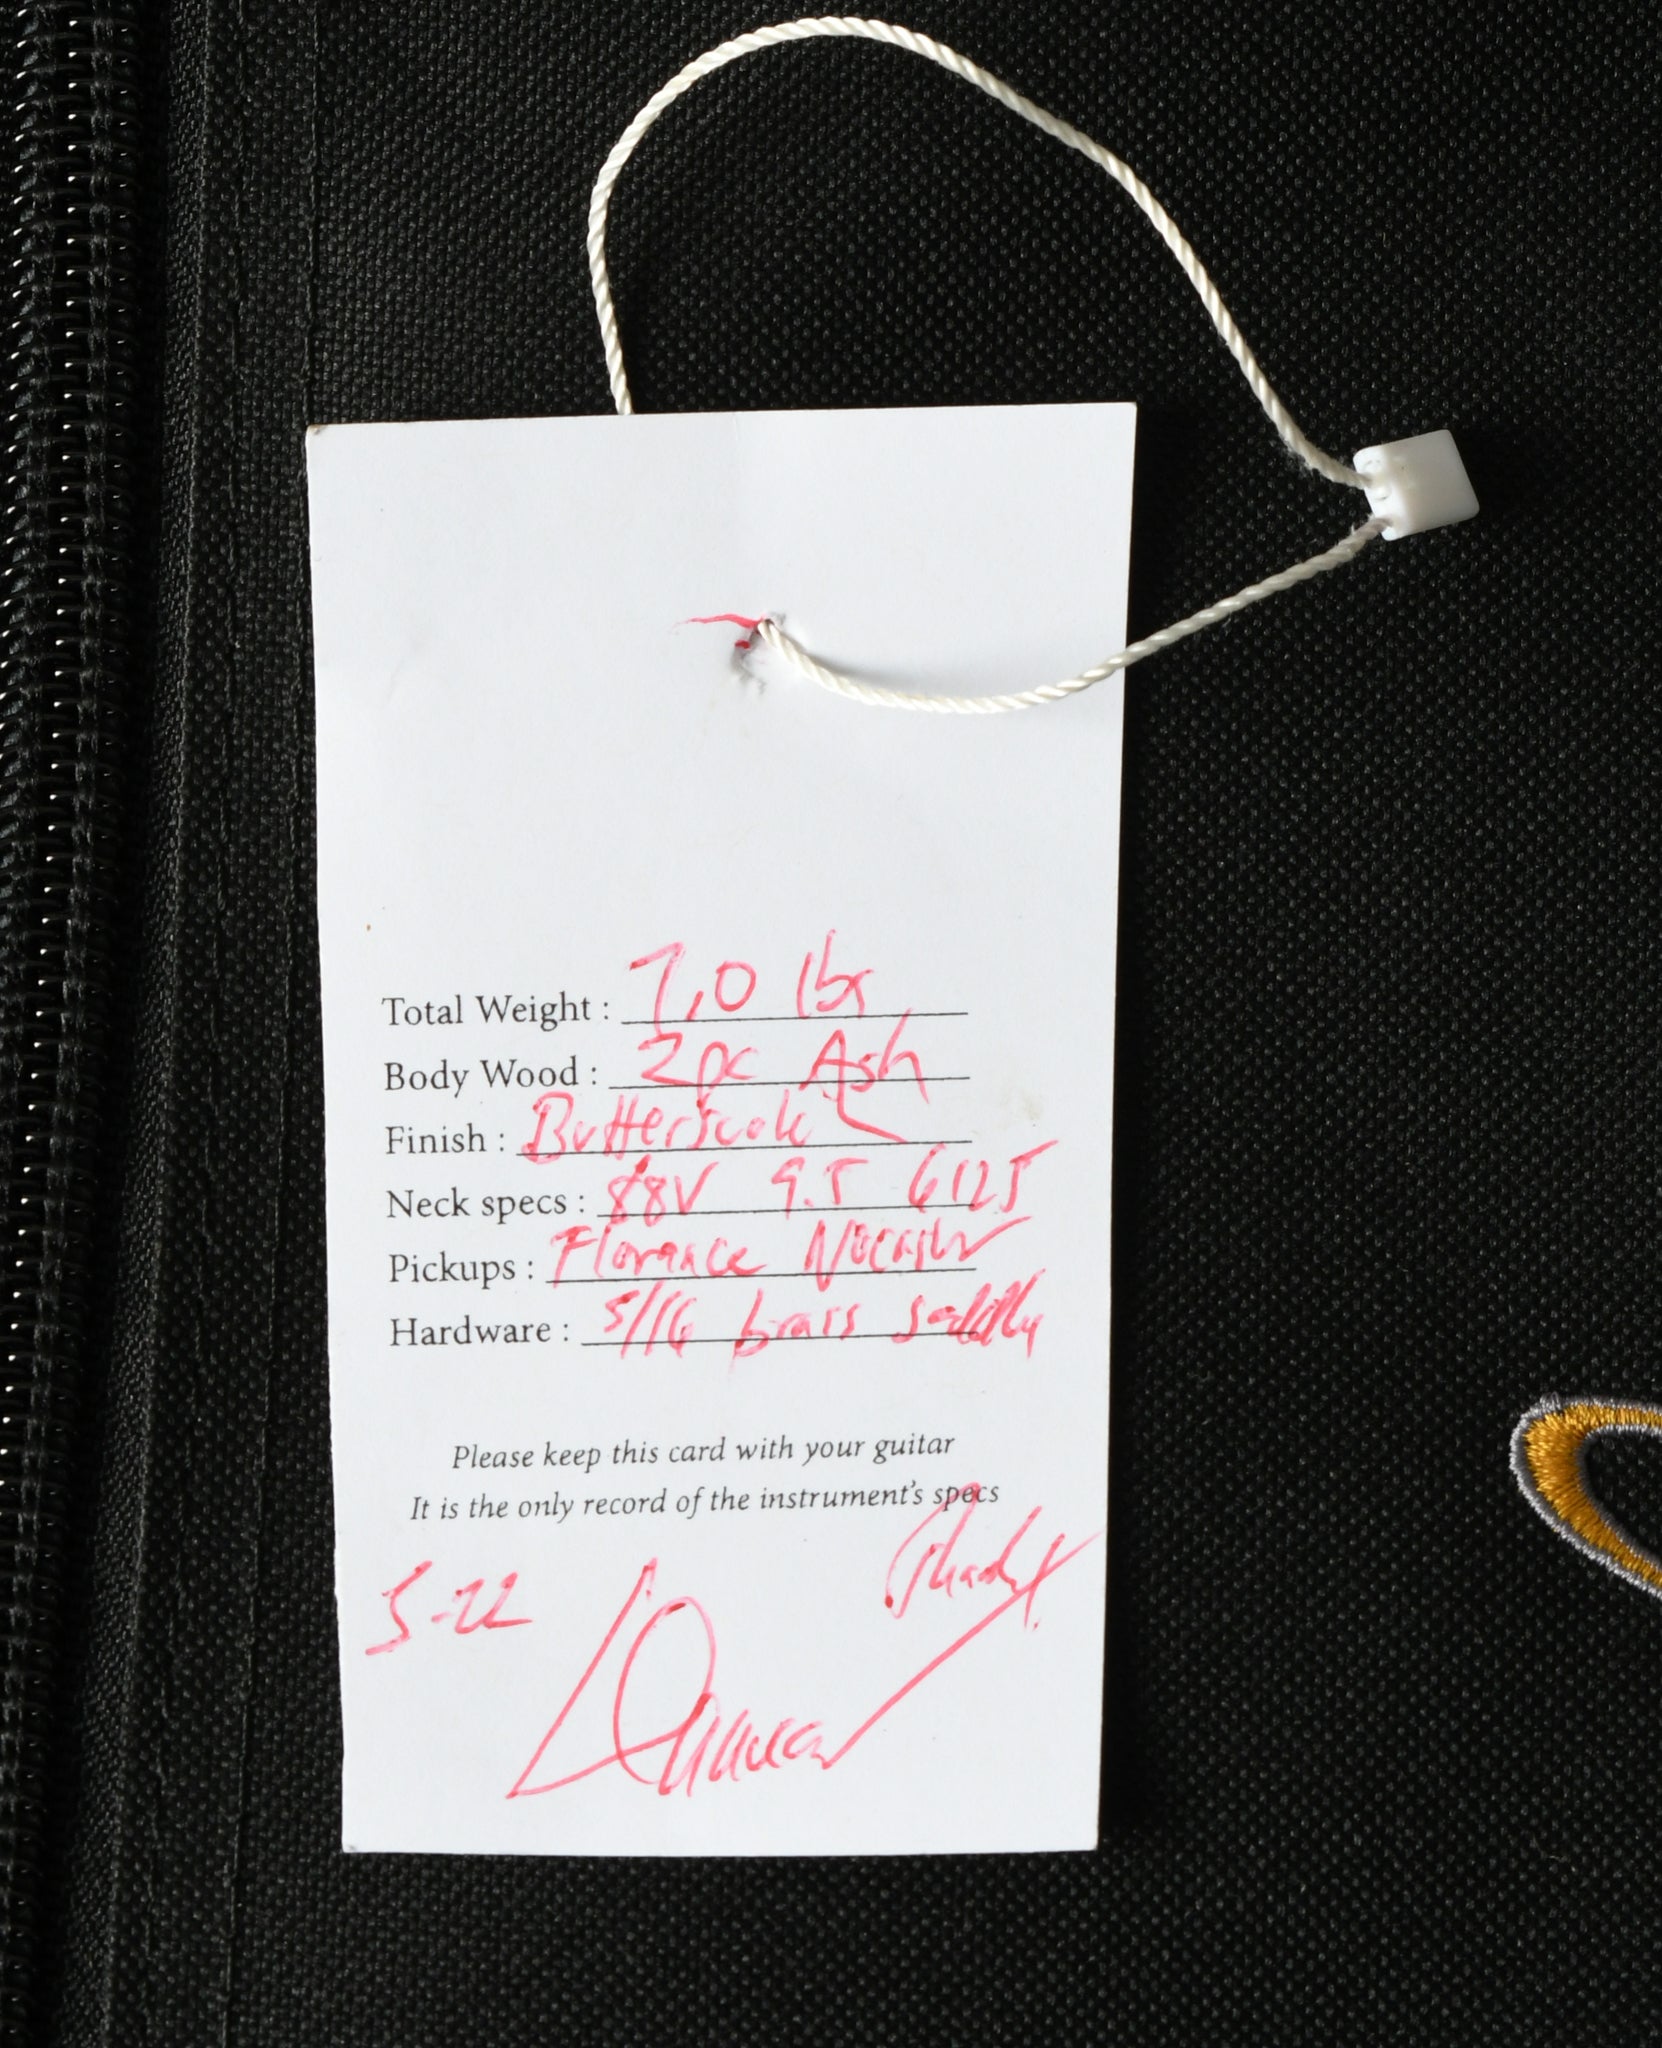 Total Weight : 7.0 lbs
Body Wood : 2pc Ash
Finish : Butterscotch
Neck specs : 88V 9.5 6125
Pickups : Florance Nocaster
Hardware : 5/16 brass saddles
Please keep this card with your guitar
It is the only record of the instrument's specs
Thanks!
5-22